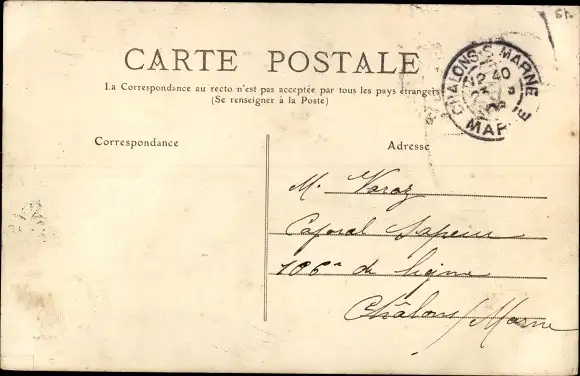 CARTE POSTALE
La Correspondance au recto n'est pas acceptée par tous les pays étrangers
(Se renseigner à la Poste)
CHALONS-S-MARNE
12 40
MARNE
Correspondance
Adresse
M. Varoz
Caporal Sapeur
106e de ligne
Châlons/Marne